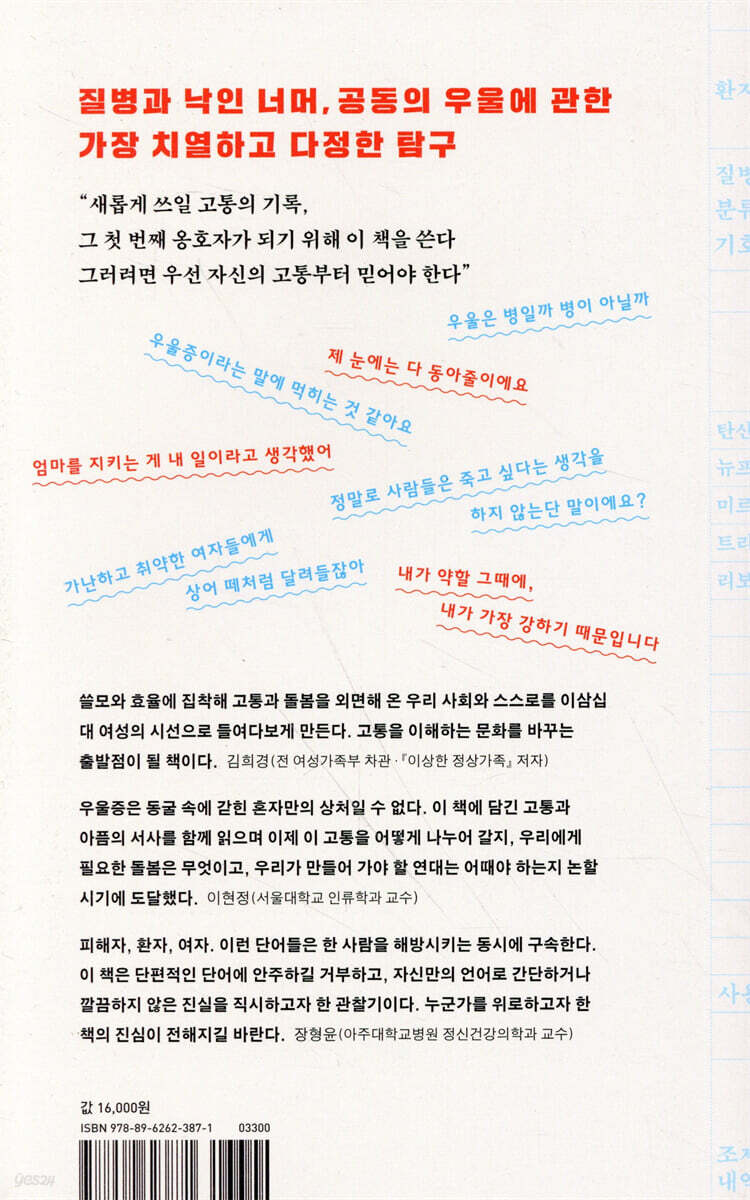 질병과 낙인 너머, 공동의 우울에 관한
가장 치열하고 다정한 탐구
“새롭게 쓰일 고통의 기록,
그 첫 번째 옹호자가 되기 위해 이 책을 쓴다
그러려면 우선 자신의 고통부터 믿어야 한다”
우울은 병일까 병이 아닐까
우울증이라는 말에 먹히는 것 같아요
제 눈에는 다 동아줄이에요
엄마를 지키는 게 내 일이라고 생각했어
정말로 사람들은 죽고 싶다는 생각을
하지 않는단 말이에요?
가난하고 취약한 여자들에게
상어 떼처럼 달려들잖아
내가 약할 그때에,
내가 가장 강하기 때문입니다
쓸모와 효율에 집착해 고통과 돌봄을 외면해 온 우리 사회와 스스로를 이삼십
대 여성의 시선으로 들여다보게 만든다. 고통을 이해하는 문화를 바꾸는
출발점이 될 책이다. 김희경(전 여성가족부 차관·『이상한 정상가족』 저자)
우울증은 동굴 속에 갇힌 혼자만의 상처일 수 없다. 이 책에 담긴 고통과
아픔의 서사를 함께 읽으며 이제 이 고통을 어떻게 나누어 갈지, 우리에게
필요한 돌봄은 무엇이고, 우리가 만들어 가야 할 연대는 어때야 하는지 논할
시기에 도달했다. 이현정(서울대학교 인류학과 교수)
피해자, 환자, 여자. 이런 단어들은 한 사람을 해방시키는 동시에 구속한다.
이 책은 단편적인 단어에 안주하길 거부하고, 자신만의 언어로 간단하거나
깔끔하지 않은 진실을 직시하고자 한 관찰기이다. 누군가를 위로하고자 한
책의 진심이 전해지길 바란다. 장형윤(아주대학교병원 정신건강의학과 교수)
값 16,000원
ISBN 978-89-6262-387-1 03300
yes24
질병
분류
기호
탄산
뉴프
미르
트리
리보